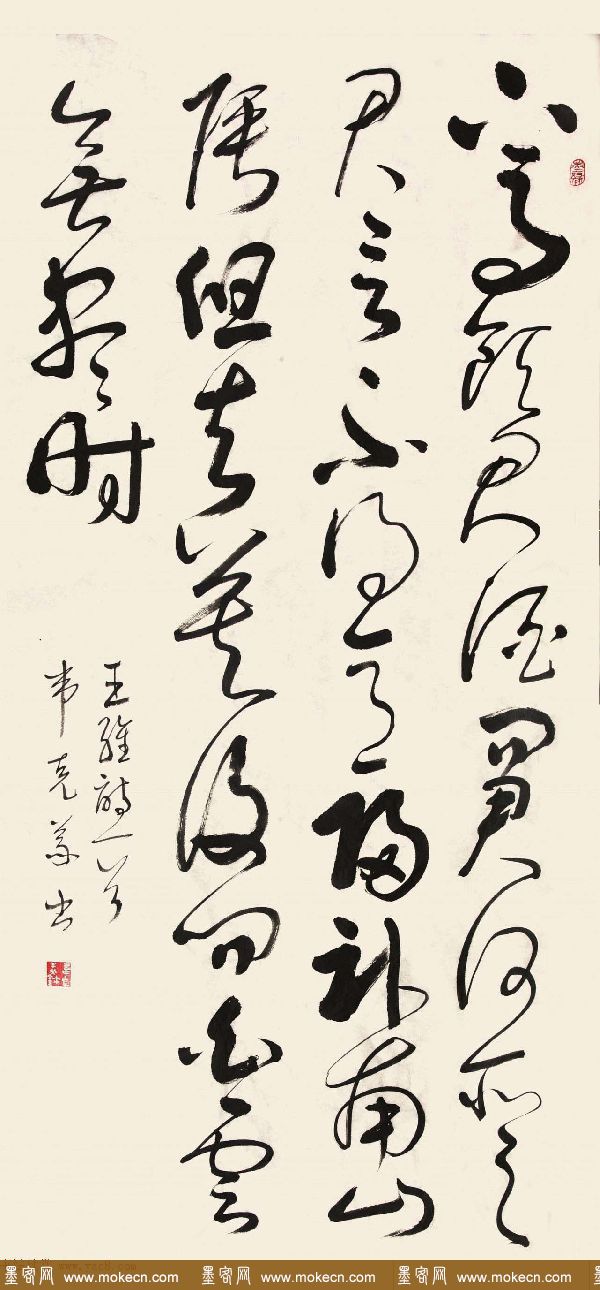 下馬飲君酒問君何所之
君言不得意歸卧南山
陲但去莫復問白雲
無盡時
王維詩一首
韦克義书
墨客网 www.mokecn.com 墨客网 www.mokecn.com 墨客网 www.mokecn.com